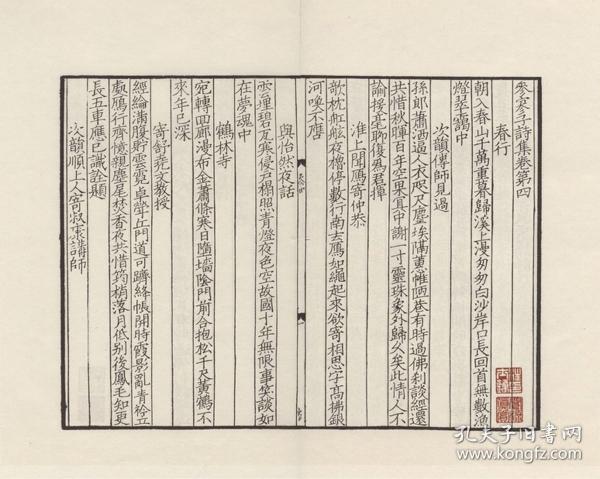 參寥子詩集卷第四
春行
朝入春山千萬重暮歸溪上漫匆匆白沙岸口長回首無數漁
燈翠靄中
次韻傅師見過
孫郎蕭洒逼人衣咫尺塵埃隔
陋巷有時過佛刹談經還
共惜秋暉百年空果
中謝一寸靈珠象外歸久矣此情人不
論援毫聊復為君揮
淮上聞鴈寄仲恭
欹枕舡舷夜櫓停數行南去鴈如繩起來欲寄相思字高拂銀
河喚不譍
與怡然夜話
雲埋碧瓦寒侵戶榻照青燈夜色空故國十年無限事笑談如
在夢魂中
鶴林寺
宛轉四廊漫布金蕭條寒日墮墻陰門前合抱松千尺黃鶴不
來年已深
寄舒堯文教授
經綸滿腹貯雲霓卓犖丘門道可躋絳帳開時霞影亂青衿立
處鴈行齊憶親麈尾焚香夜共惜筠梢落月低别後鳳毛知更
長五車應已識筌題
次韻順上人寄淑
講師
孔夫子旧书网
www.kongfz.com